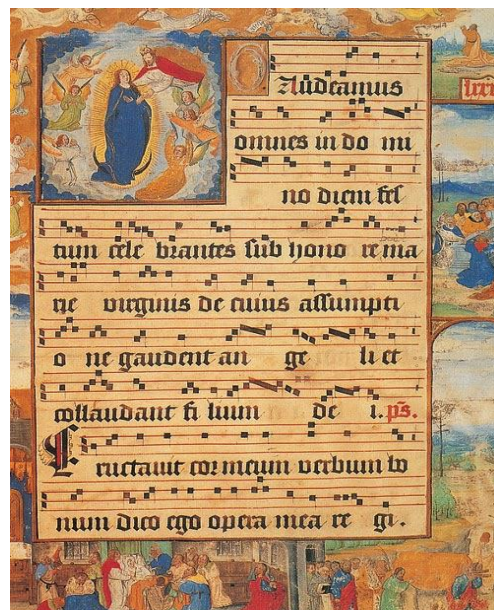 Gaudeamus
omnes in do mi
no diem fes
tum cele brantes sub hono re ma
rie virginis de cuius assumpti
o ne gaudent an ge li et
collaudant fi lium de i. ps.
Eructauit cor meum verbum bo
num dico ego opera mea re gi.